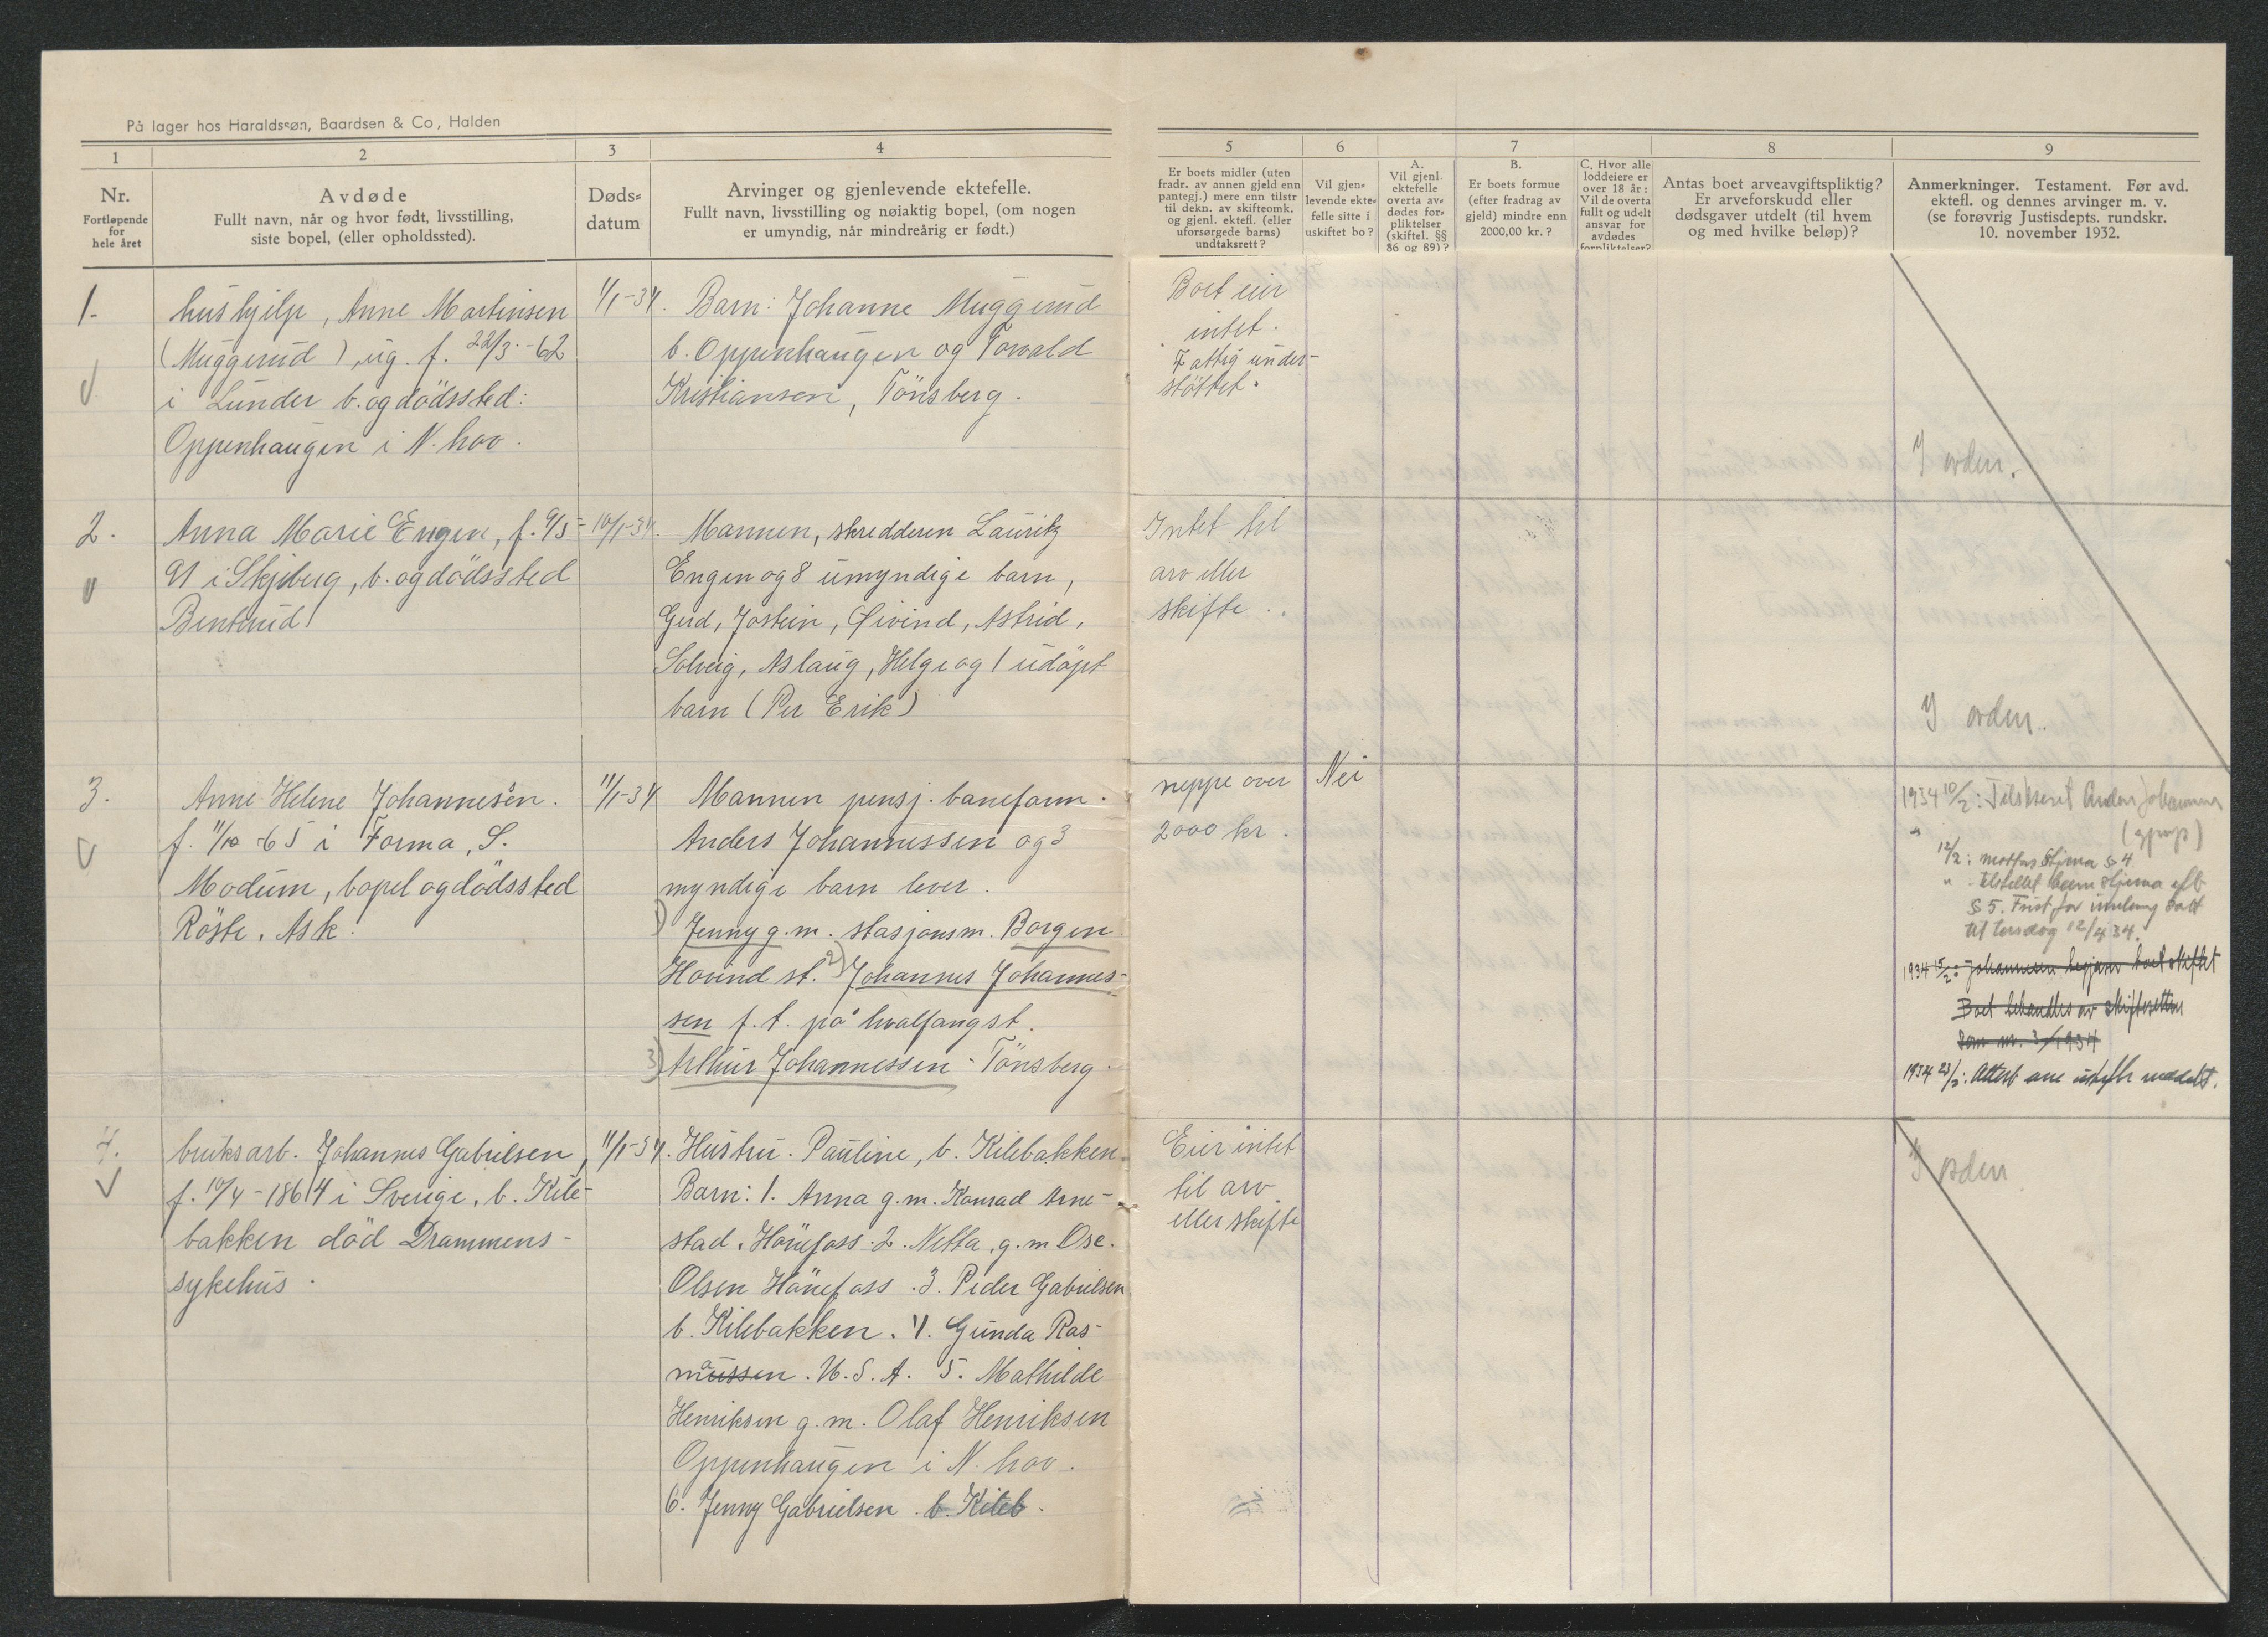 På lager hos Haraldssøn, Baardsen & Co, Halden
1
2
3
4
5
6
7
8
9
Nr.
Fortløpende
for
hele året
Avdøde
Fullt navn, når og hvor født, livsstilling,
siste bopel, (eller opholdssted).
Døds-
datum
Arvinger og gjenlevende ektefelle.
Fullt navn, livsstilling og nøiaktig bopel, (om nogen
er umyndig, når mindreårig er født.)
Er boets midler (uten
fradr. av annen gjeld enn
pantegj.) mere enn tilstr
til dekn. av skifteomk.
og gjenl. ektefl. (eller
uforsørgede barns)
undtaksrett?
Vil gjen-
levende ekte-
felle sitte i
uskiftet bo?
A.
Vil gjenl.
ektefelle
overta av-
dødes for-
pliktelser
(skiftel. §§
86 og 89)?
B.
Er boets formue
(efter fradrag av
gjeld) mindre enn
2000,00 kr.?
C. Hvor alle
loddeiere er
over 18 år:
Vil de overta
fullt og udelt
ansvar for
avdødes
forpliktelser?
Antas boet arveavgiftspliktig?
Er arveforskudd eller
dødsgaver utdelt (til hvem
og med hvilke beløp)?
Anmerkninger. Testament. Før avd.
ektefl. og dennes arvinger m. v.
(se forøvrig Justisdepts. rundskr.
10. november 1932.
1.
hushjelp, Anne Martinsen
(Muggerud), ug. f. 22/3.-62
i Lunder b. og dödssted:
Oppenhaugen i N. hov.
1/1-34.
Barn: Johanne Muggerud
b. Oppenhaugen og Torvald
Kristiansen, Tönsberg.
Boet eier
intet.
Fattig under-
støttet.
I orden.
2.
Anna Marie Engen, f. 9/5-
91 i Skjeberg, b. og dödssted
Benterud
10/1-34.
Mannen, skredderen Lauritz
Engen og 8 umyndige barn,
Gerd, Jostein, Øivind, Astrid,
Solveig, Aslaug, Helge og 1 udöpt
barn (Per Erik)
Intet til
arv eller
skifte.
I orden.
3.
Anne Helene Johannesen.
f. 11/10-65 i Forma, S.
Modum, bopel og dödssted
Röste, Ask.
11/1-34
Mannen pensj. baneform.
Anders Johannessen og 3
myndige barn lever.
1) Jenny g.m. stasjonsm. Borgen
Hovind st. 2) Johannes Johannes-
sen f.t. på hvalfangst.
3) Arthur Johannessen - Tönsberg.
neppe over
2000 kr.
Nei
1934 10/2: Tilskrevet Anders Johannesen
12/2: mottas skjema § 4
" tilstillet ham skjema eft
§ 5. Frist for innlevng satt
til torsdag 12/4 34.
1934 15/2: Johannesen begjærer boet skiftet
Boet behandles av skifteretten
som nr. 3/1934
1934 23/2: Attest om uskifte meddelt.
4.
bruksarb. Johannes Gabrielsen,
f. 10/4-1864 i Sverige, b. Kile-
bakken död Drammens-
sykehus.
11/1-34.
Hustru. Pauline, b. Kilebakken
Barn: 1. Anna g.m. Konrad Arne-
stad. Hönefoss. 2. Netta, g.m Osc.
Olsen Hönefoss. 3. Peder Gabrielsen
b. Kilebakken. 4. Gunda Ras-
mussen. U.S.A. 5. Mathilde
Henriksen g.m. Olaf Henriksen
Oppenhaugen i N. hov.
6. Jenny Gabrielsen. b. Kileb.
Eier intet
til arv
eller skifte
I orden